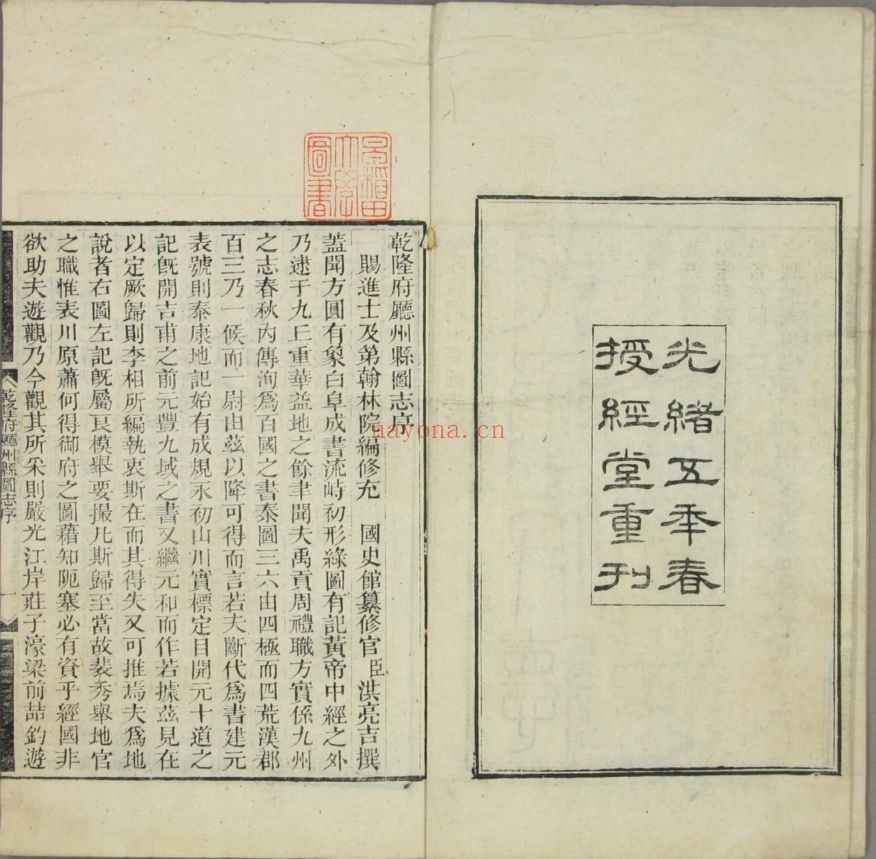 光緒五年春
授經堂重刊
早稻田
大學
圖書
乾隆府廳州縣圖志序
賜進士及第翰林院編修充　國史館纂修官臣洪亮吉撰
蓋聞方圓有象白阜成書流峙初形綠圖有記黃帝中經之外
乃逮于九丘重華益地之餘聿聞夫禹貢周禮職方實係九州
之志春秋內傳洵爲百國之書秦圖三六由四極而四荒漢郡
百三乃一候而一尉由茲以降可得而言若夫斷代爲書建元
表號則泰康地記始有成規永初山川實標定目開元十道之
記旣開吉甫之前元豐九域之書又繼元和而作若據茲見在
以定厥歸則李相所編執衷斯在而其得失又可推焉夫爲地
說者右圖左記旣屬良模舉要撮凡斯歸至當故裴秀舉地官
之職惟表川原蕭何得御府之圖藉知阨塞必有資乎經國非
欲助夫遊觀乃今觀其所采則嚴光江岸莊子濠梁前喆釣遊
乾隆府廳州縣圖志序　一
nayona.cn